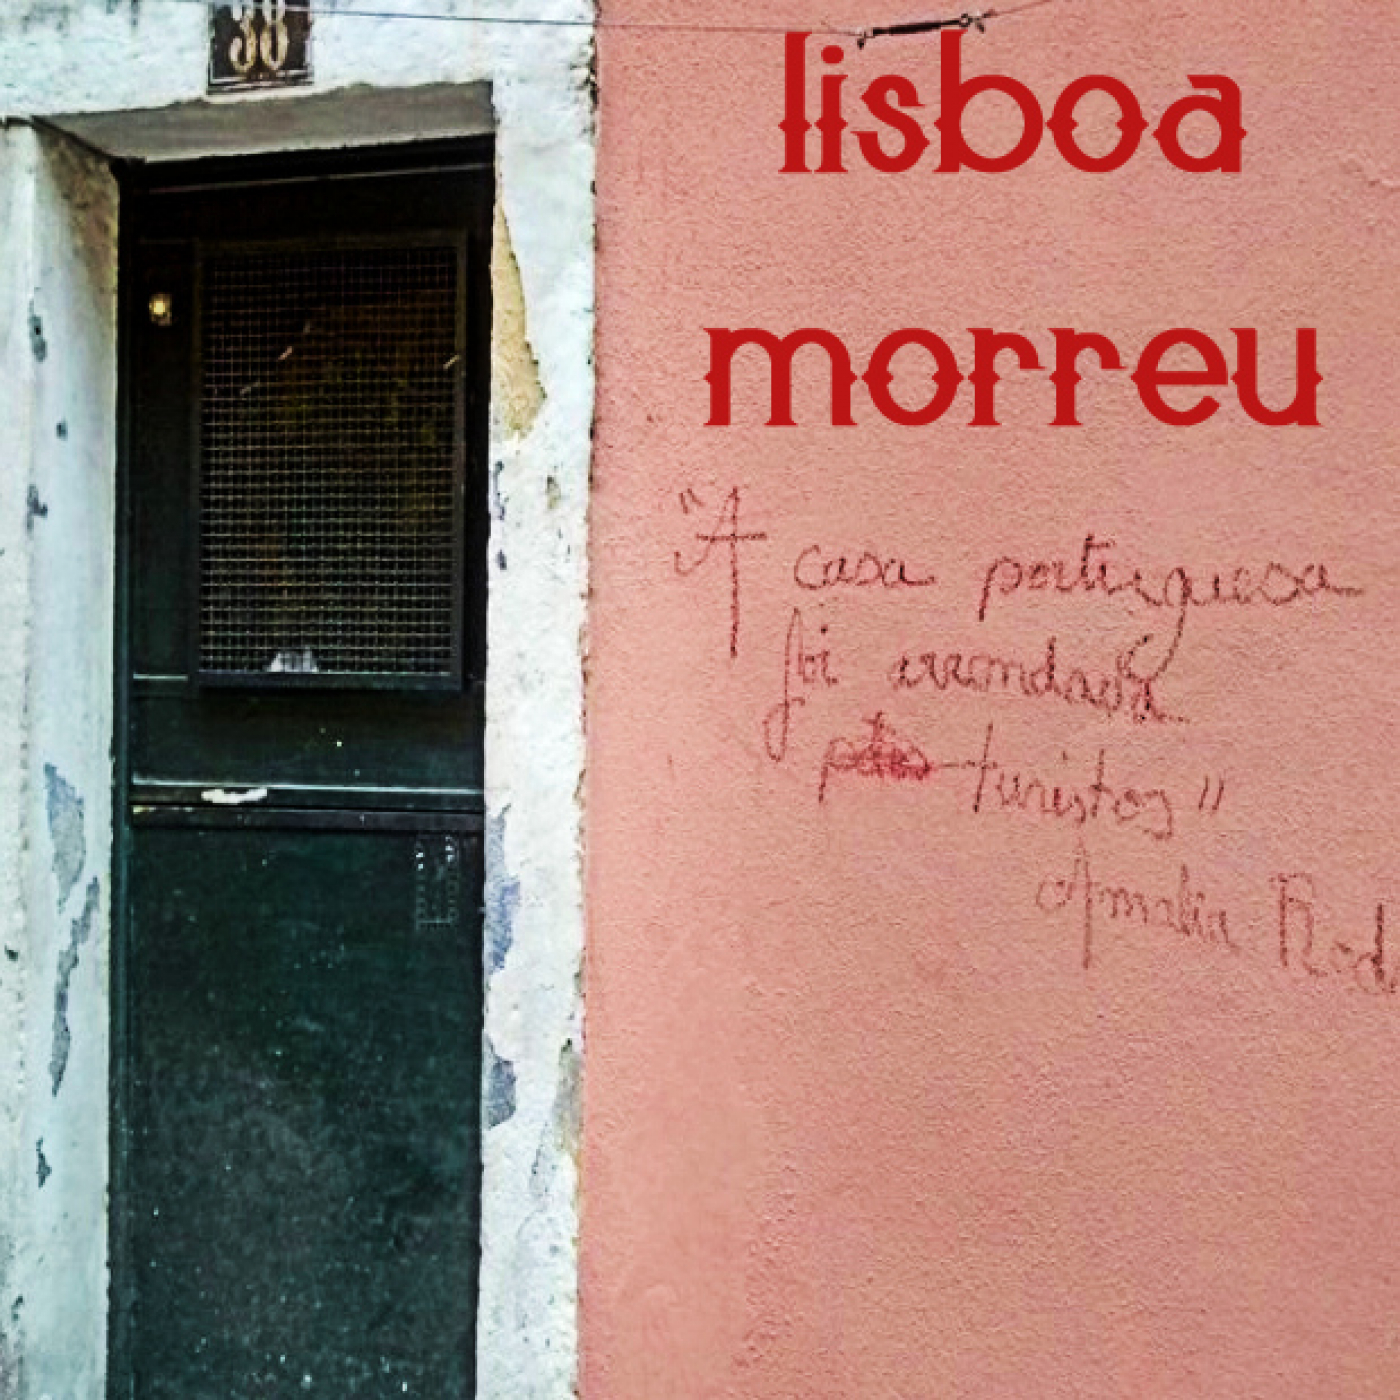 38
lisboa
morreu
"A casa portuguesa
foi arrendada
turistas"
Amalia Rod